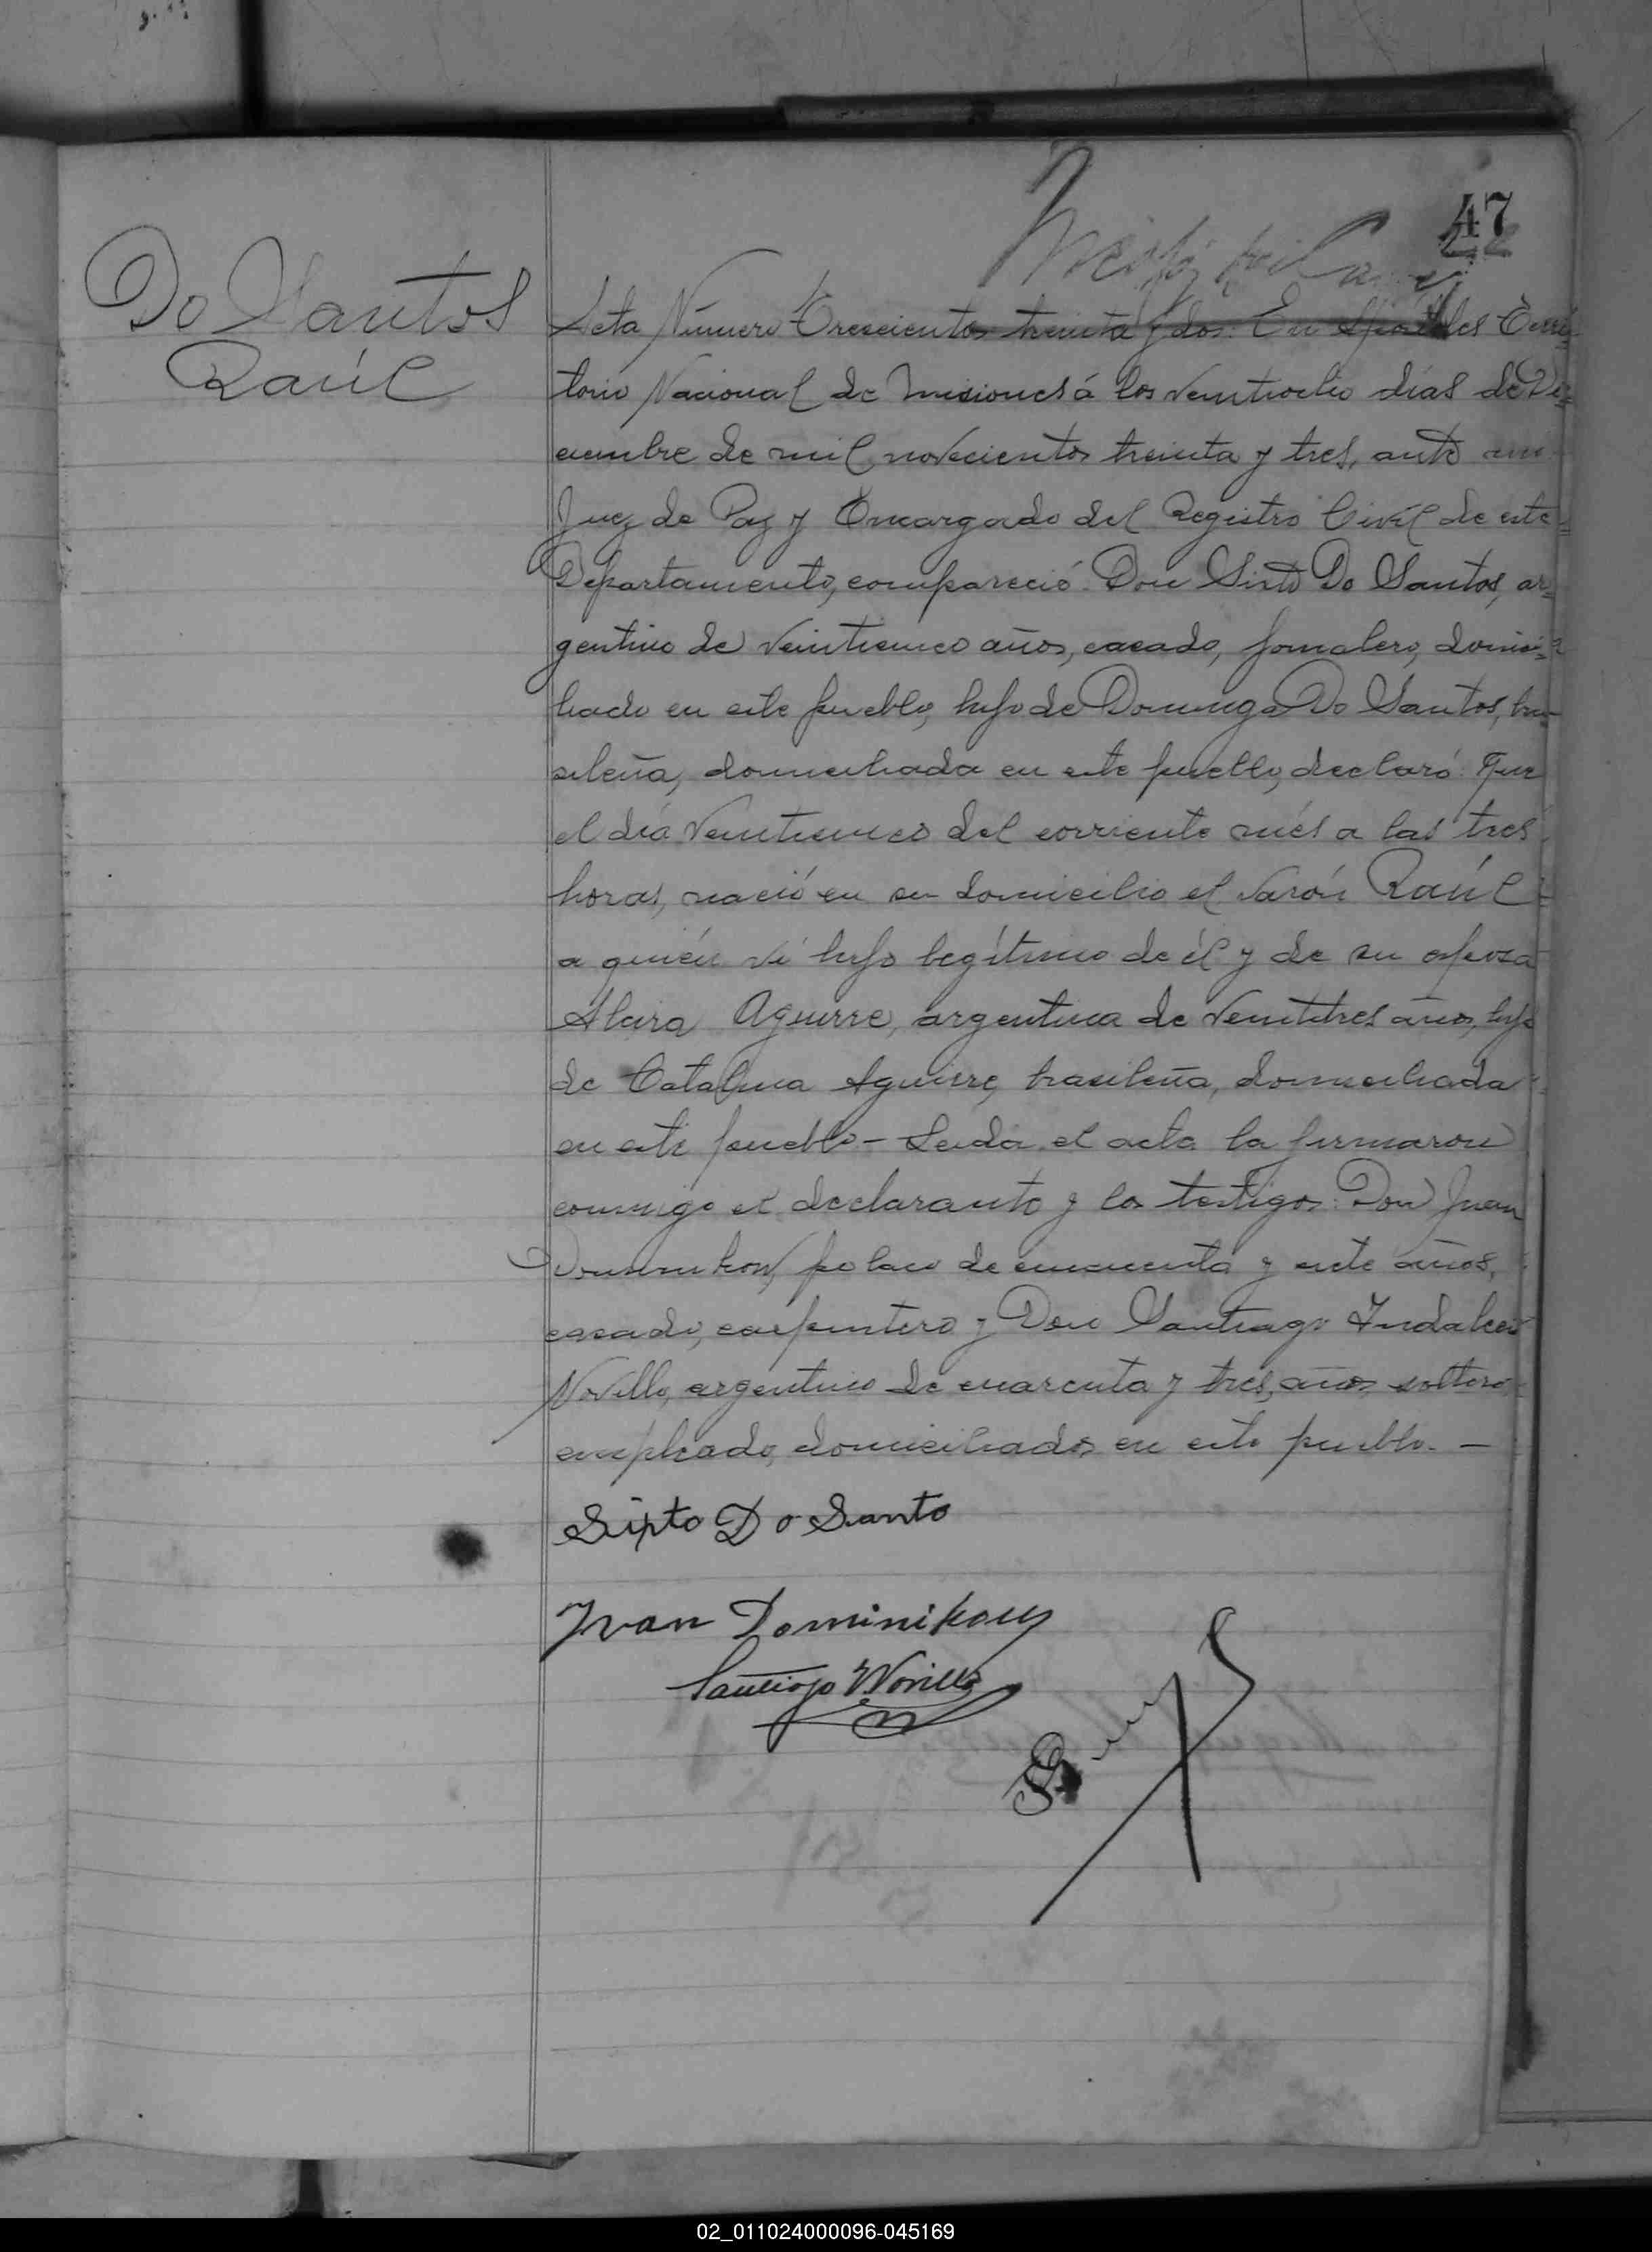 47
Do Santos
Raúl
Acta Número Trescientos treinta y dos: En Apóstoles Terri=
torio Nacional de Misiones á los veintiocho días de Di=
ciembre de mil novecientos treinta y tres, ante mi
Juez de Paz y Encargado del Registro Civil de este
Departamento, compareció: Don Sixto Do Santos, ar=
gentino de veinticinco años, casado, jornalero, domici=
liado en este pueblo, hijo de Dominga Do Santos, bra=
sileña, domiciliada en este pueblo, declaró: Que
el día veinticinco del corriente més a las tres
horas, nació en su domicilio el varón Raúl
a quién vi hijo legítimo de él y de su esposa
Aguirre, argentina de veintitres años, hija
de Catalina Aguirre, brasileña, domiciliada
en este pueblo - Leida el acta la firmaron
conmigo el declarante y los testigos: Don Juan
Dominikow, polaco de cincuenta y siete años,
casado, carpintero y Don Santiago Indalecio
Novillo, argentino de cuarenta y tres, años soltero
empleado, domiciliados en este pueblo. -
Sixto Do Santo
Ivan Dominikow
Santiago Novillo
02_011024000096-045169